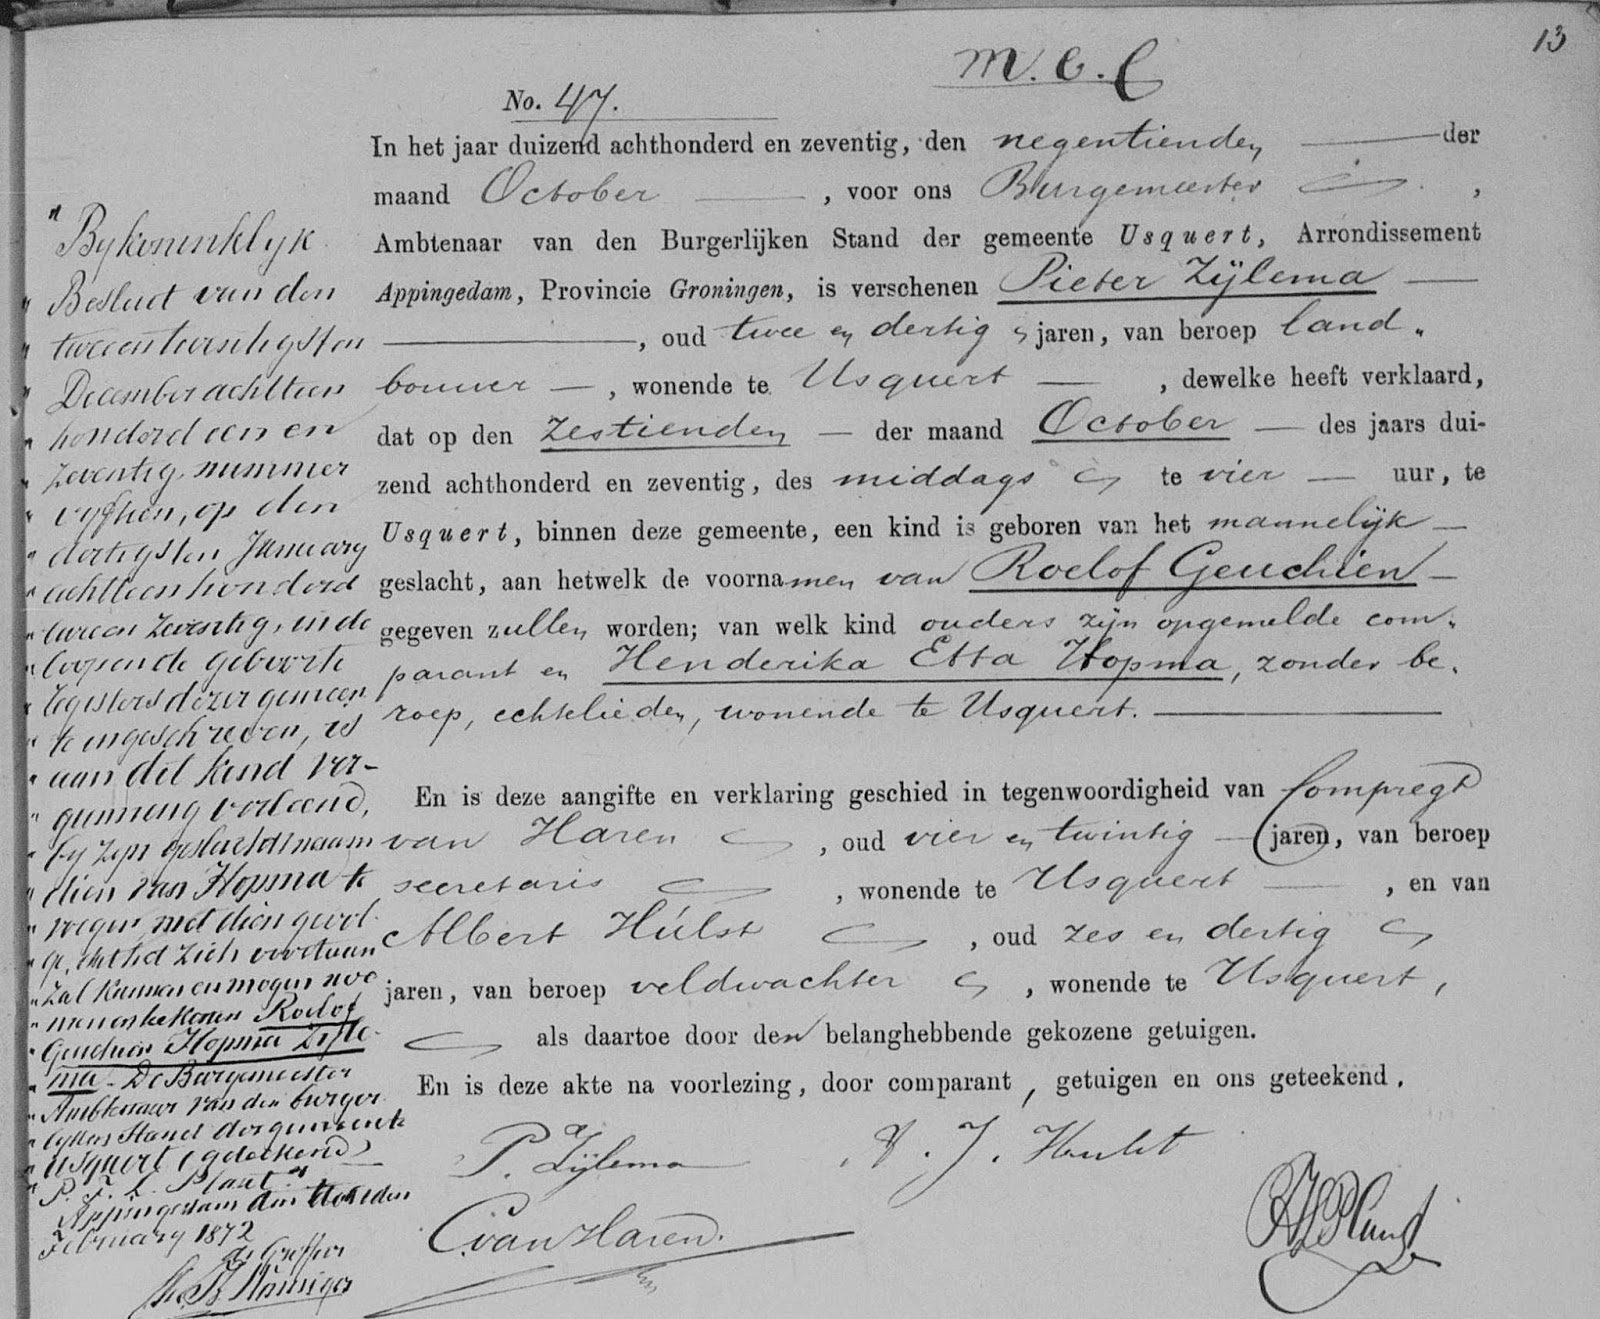 13
M. C. C
No. 47.
In het jaar duizend achthonderd en zeventig, den negentienden der
maand October, voor ons Burgemeester,
Ambtenaar van den Burgerlijken Stand der gemeente Usquert, Arrondissement
Appingedam, Provincie Groningen, is verschenen Pieter Zijlema
, oud twee en dertig jaren, van beroep land„
bouwer, wonende te Usquert, dewelke heeft verklaard,
dat op den zestienden der maand October des jaars dui-
zend achthonderd en zeventig, des middags te vier uur, te
Usquert, binnen deze gemeente, een kind is geboren van het mannelijk
geslacht, aan hetwelk de voornamen van Roelof Geuchien
gegeven zullen worden; van welk kind ouders zijn opgemelde com„
parant en Henderika Etta Hopma, zonder be„
roep, echtelieden, wonende te Usquert.
En is deze aangifte en verklaring geschied in tegenwoordigheid van Compregt
van Haren, oud vier en twintig jaren, van beroep
secretaris, wonende te Usquert, en van
Albert Hulst, oud zes en dertig
jaren, van beroep veldwachter, wonende te Usquert,
als daartoe door den belanghebbende gekozene getuigen.
En is deze akte na voorlezing, door comparant, getuigen en ons geteekend.
P. Zijlema
A. J. Hulst
C van Haren.
„ By koninklyk
„ Besluit van den
„ tweentwintigsten
„ December achttien
„ honderd een en
„ zeventig, nummer
„ vyftien, op den
„ dertigsten January
„ achttienhonderd
„ tweeen zeventig, in de
„ loopende geboorte
„ registers dezer gemeen
„ te ingeschreven, is
„ aan dit kind ver-
„ gunning verleend,
„ by zyn geslachtsnaam
„ dien van Hopma te
„ voegen, met dien gevol
„ ge, dat hij zich voortaan
„ zal kunnen en mogen noe
„ men en teekenen Roelof
„ Geuchien Hopma Zijle-
„ ma. De Burgemeester
„ Ambtenaar van den burger
„ lyken Stand der gemeente
„ Usquert (geteekend)
„ P. F. L. Plant."
Appingedam den
February 1872
de Griffier